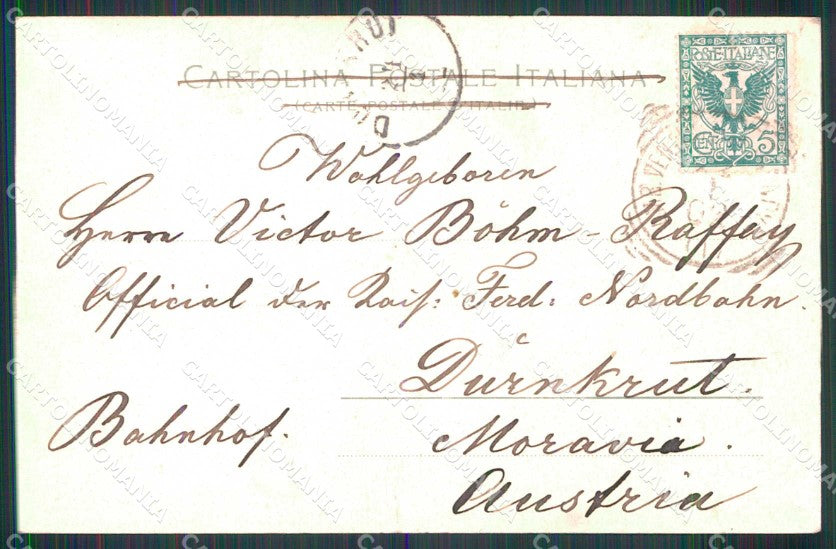 CARTOLINA POSTALE ITALIANA
(CARTE POSTALE D'ITALIE)
POSTE·ITALIANE
CENT 5
Wohlgeboren
Herrn Victor Böhm-Raffay
Official der Kais: Ferd: Nordbahn.
Dürnkrut.
Bahnhof.
Moravia.
Austria
CARTOLINOMANIA